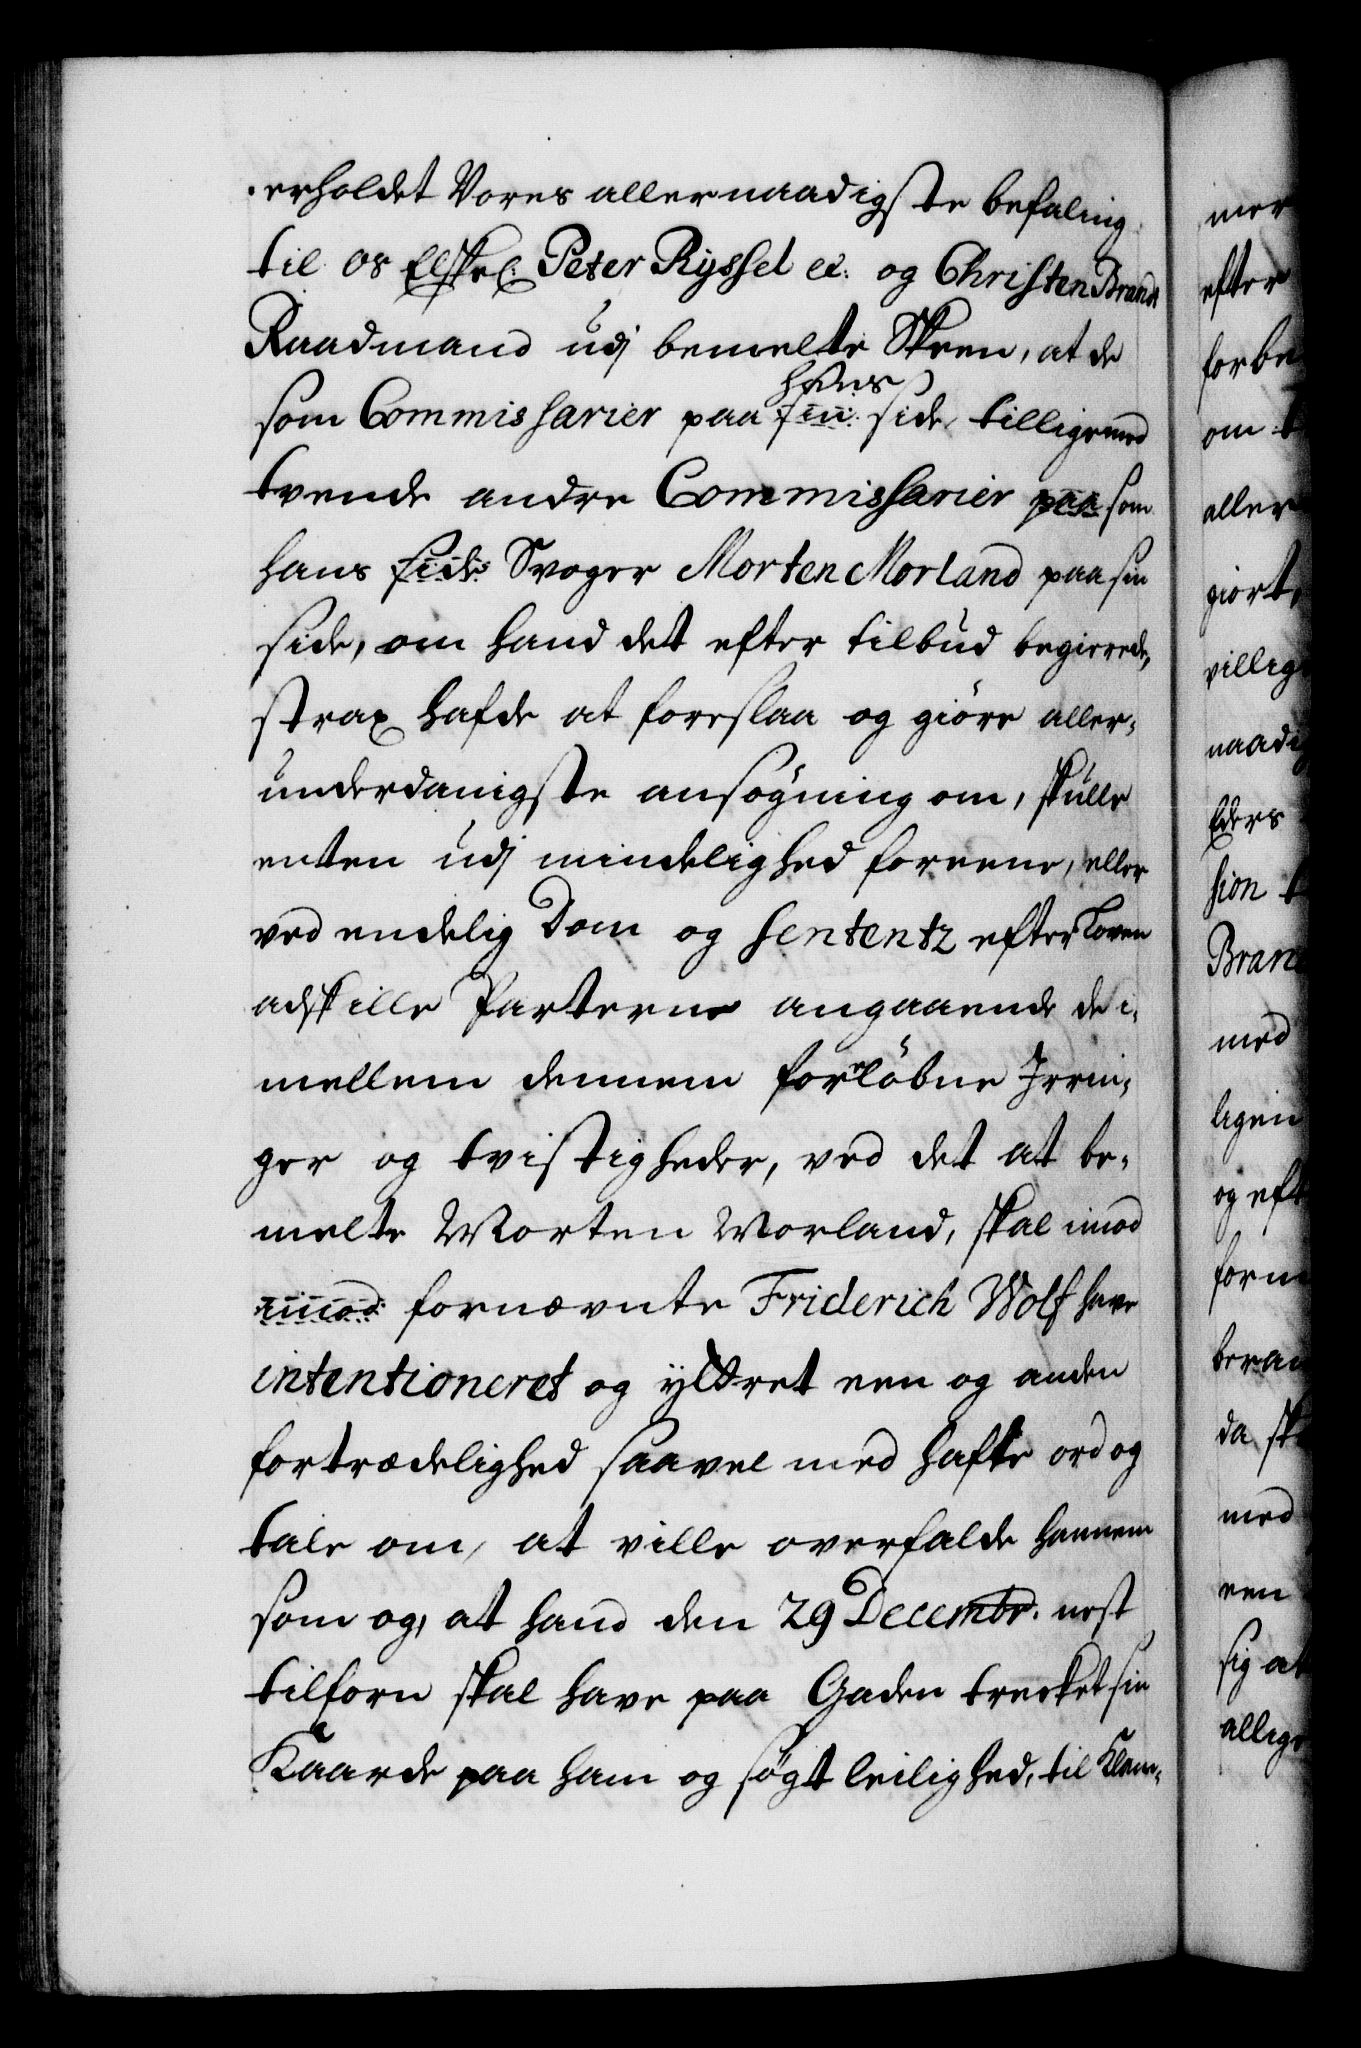 erholdet Vores allernaadigste befaling
til os Elskel: Peter Ryssel et: og Christen Brandt
Raadmand udj bemelte Skeen, at de
som Commissarier paa sin hans side tilligemed
tvende andre Commissarier paa som
hans side Svoger Morten Morland paa sin
side, om hand det efter tilbud begierede,
strax hafde at foreslaa og giöre aller-
underdanigste ansögning om, skulle
enten udj mindelighed foreene, eller
ved endelig Dom og Sententz efter Loven
adskille Parterne angaaende de i-
mellem dennem forelöbne Irrin-
ger og tvistigheder, ved det at be-
melte Morten Morland, skal imod
imod fornævnte Friderich Wolf have
intentioneret og yttret een og anden
fortrædelighed saavel med hafte ord og
tale om, at ville overfalde hannem
som og, at hand den 29 Decembr. nest
tilforn skal have paa Gaden trecket sin
Kaarde paa ham og sögt leilighed, til Klam-
mer
efter
forbe
om t
aller
giort,
villig
naadig
Eders
sion t
Bran
med
ligen
og eft
forn
beran
da sk
med
een
sig at
allige